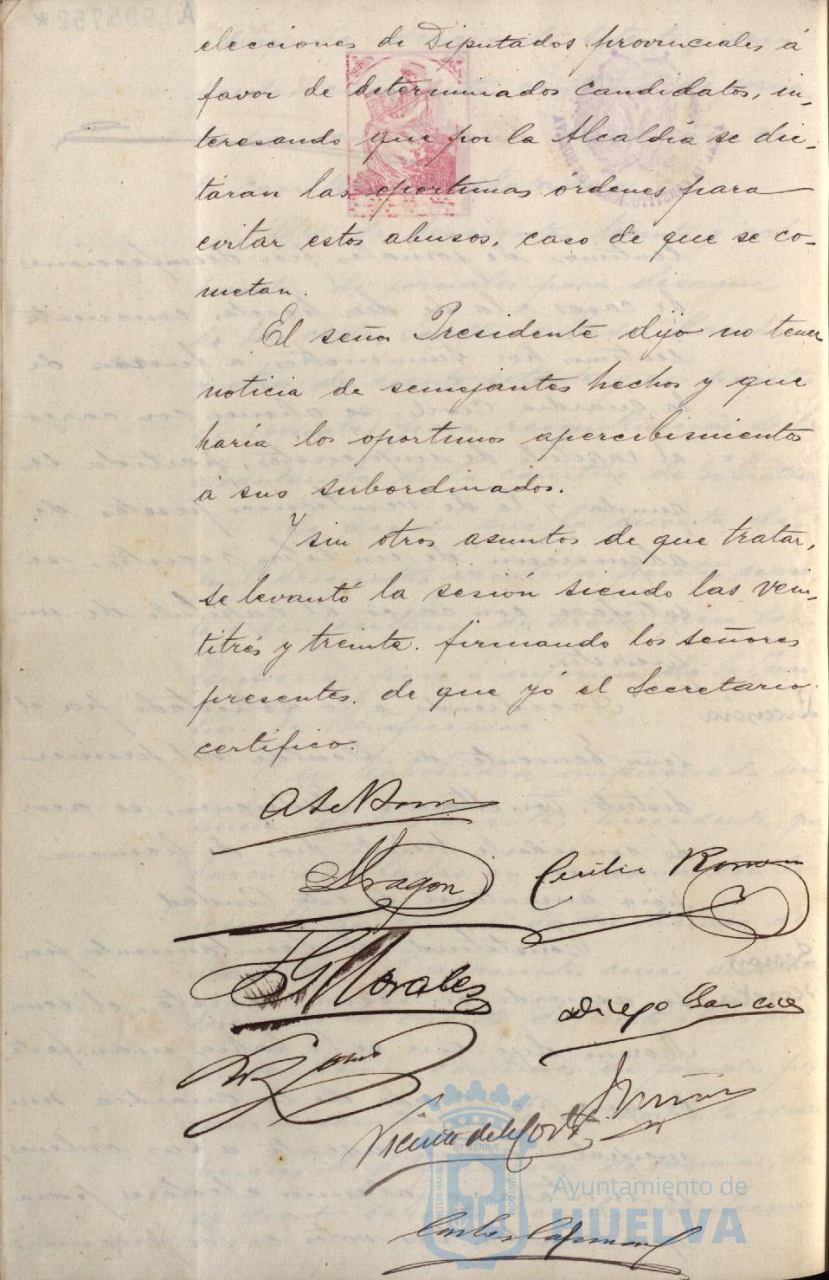 elecciones de Diputados provinciales á
favor de determinados candidatos, in-
teresando que por la Alcaldía se dic-
táran las oportunas órdenes para
evitar estos abusos, caso de que se co-
metan.
El señor Presidente dijo no tener
noticia de semejantes hechos y que
haría los oportunos apercibimientos
á sus subordinados.
Y sin otros asuntos de que tratar,
se levantó la sesión siendo las vein-
titrés y treinta. firmando los señores
presentes. de que yó el Secretario
certifico.
Aragon
Cecilio Romero
Morales
Diego Garcia
Vicente de la Corte
Ayuntamiento de
HUELVA